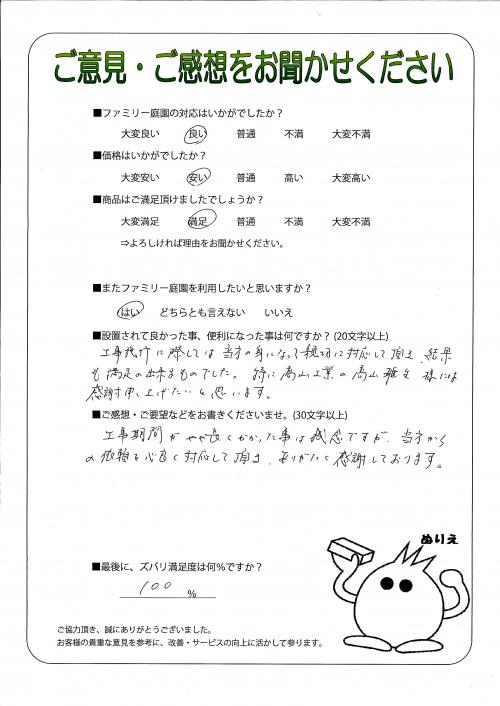 ご意見・ご感想をお聞かせください
■ファミリー庭園の対応はいかがでしたか？
大変良い 良い 普通 不満 大変不満
■価格はいかがでしたか？
大変安い 安い 普通 高い 大変高い
■商品はご満足頂けましたでしょうか？
大変満足 満足 普通 不満 大変不満
⇒よろしければ理由をお聞かせください。
■またファミリー庭園を利用したいと思いますか？
はい どちらとも言えない いいえ
■設置されて良かった事、便利になった事は何ですか？(20文字以上)
工事 に際しては当方の身になって親切に対応して頂き、結果
も満足の出来るものでした。特に高山工業の高山 様には
感謝申し上げたいと思います。
■ご感想・ご要望などをお書きくださいませ。(30文字以上)
工事期間がやや長くかかった事は残念ですが、当方から
の依頼を心良く対応して頂き、ありがたく感謝しております。
■最後に、ズバリ満足度は何%ですか？
100 %
ぬりえ
ご協力頂き、誠にありがとうございました。
お客様の貴重な意見を参考に、改善・サービスの向上に活かして参ります。